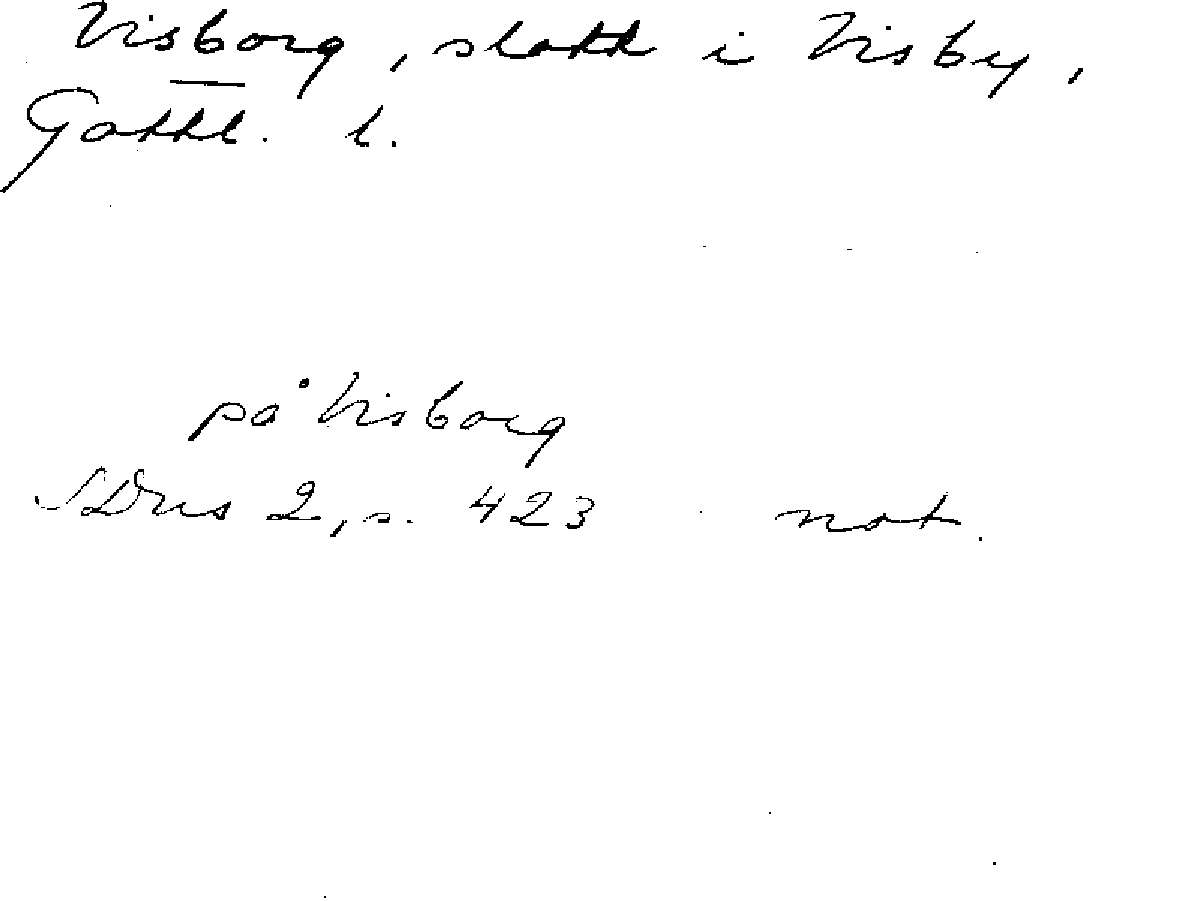 Visborg, slott i Visby,
Gottl. l.
på Visborg
SDns 2, s. 423 not.